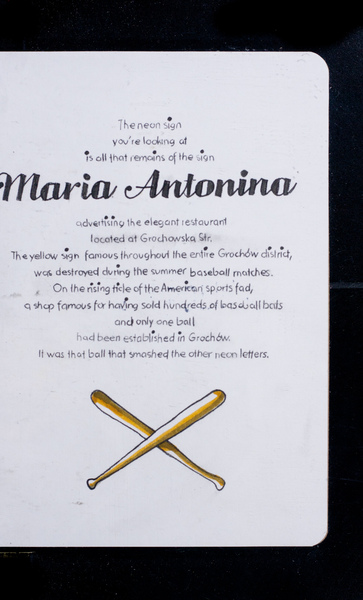 The neon sign
you're looking at
is all that remains of the sign
Maria Antonina
advertising the elegant restaurant
located at Grochowska Str.
The yellow sign famous throughout the entire Grochów district,
was destroyed during the summer baseball matches.
On the rising tide of the American sports fad,
a shop famous for having sold hundreds of baseball bats
and only one ball
had been established in Grochów.
It was that ball that smashed the other neon letters.